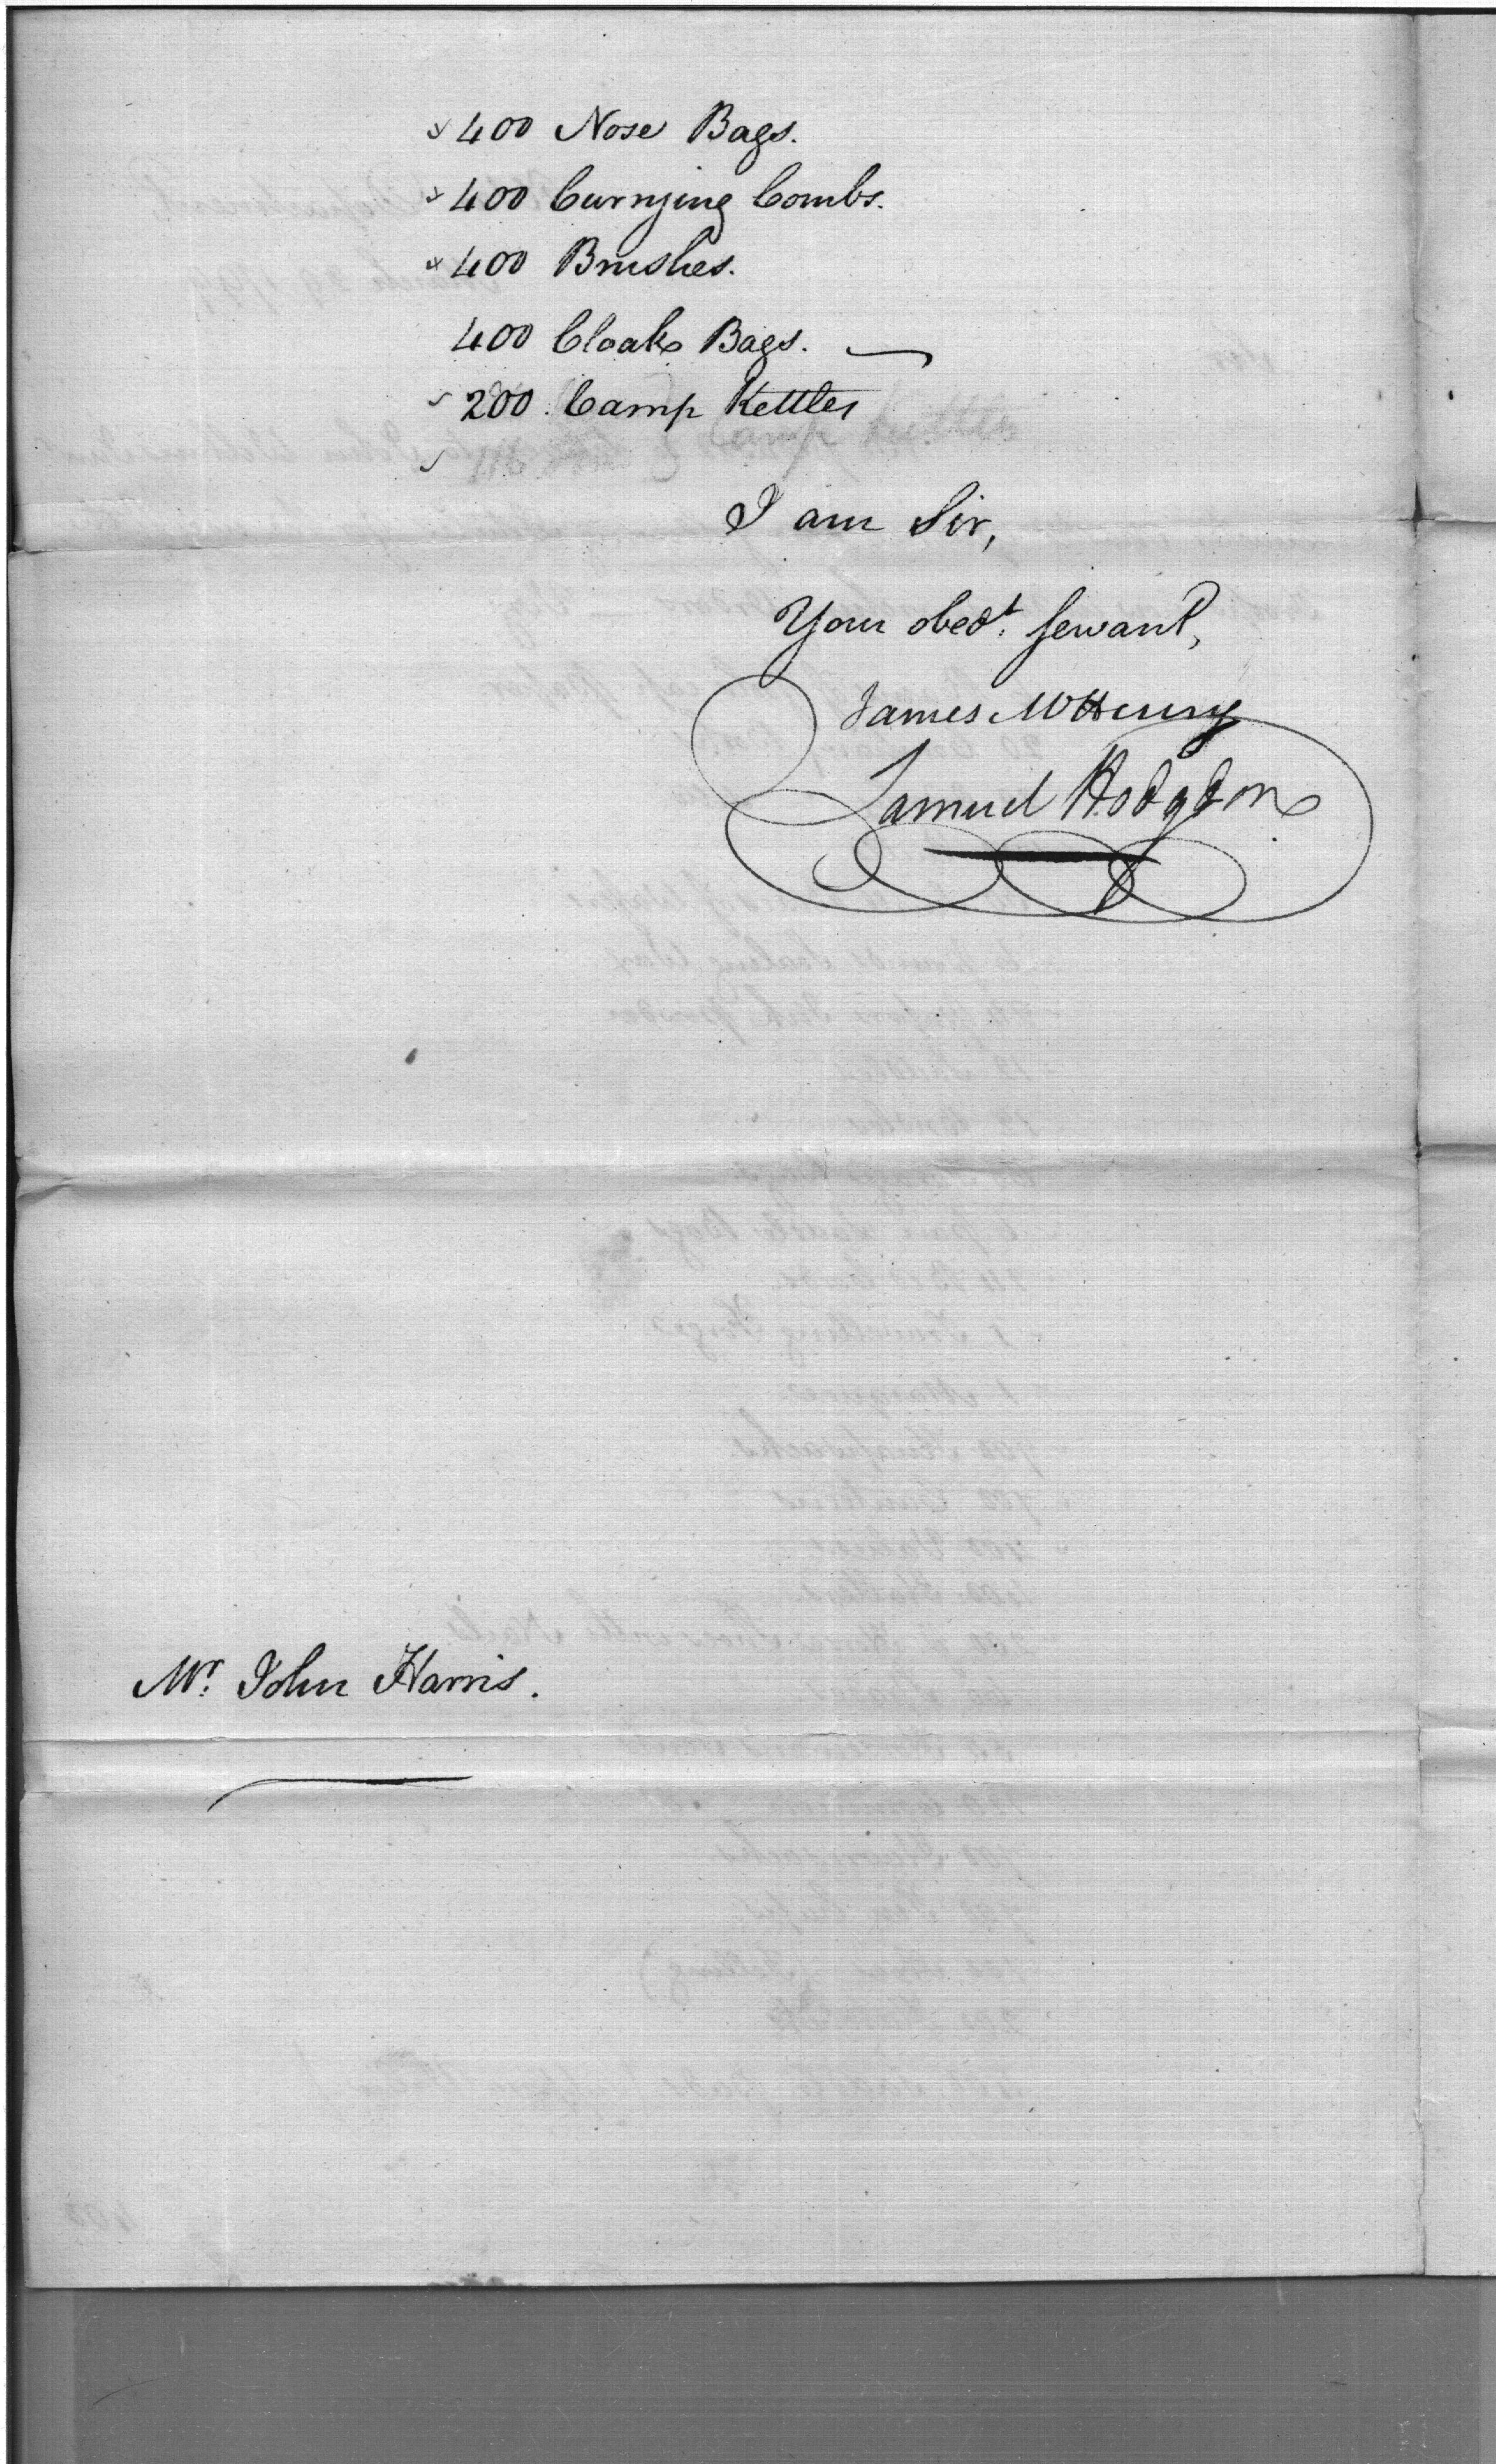 400 Nose Bags.
400 Currying Combs.
400 Brushes.
400 Cloak Bags.
200 Camp Kettles
I am Sir,
Your obedt. Servant,
James McHenry
Samuel Hodgdon
Mr. John Harris.